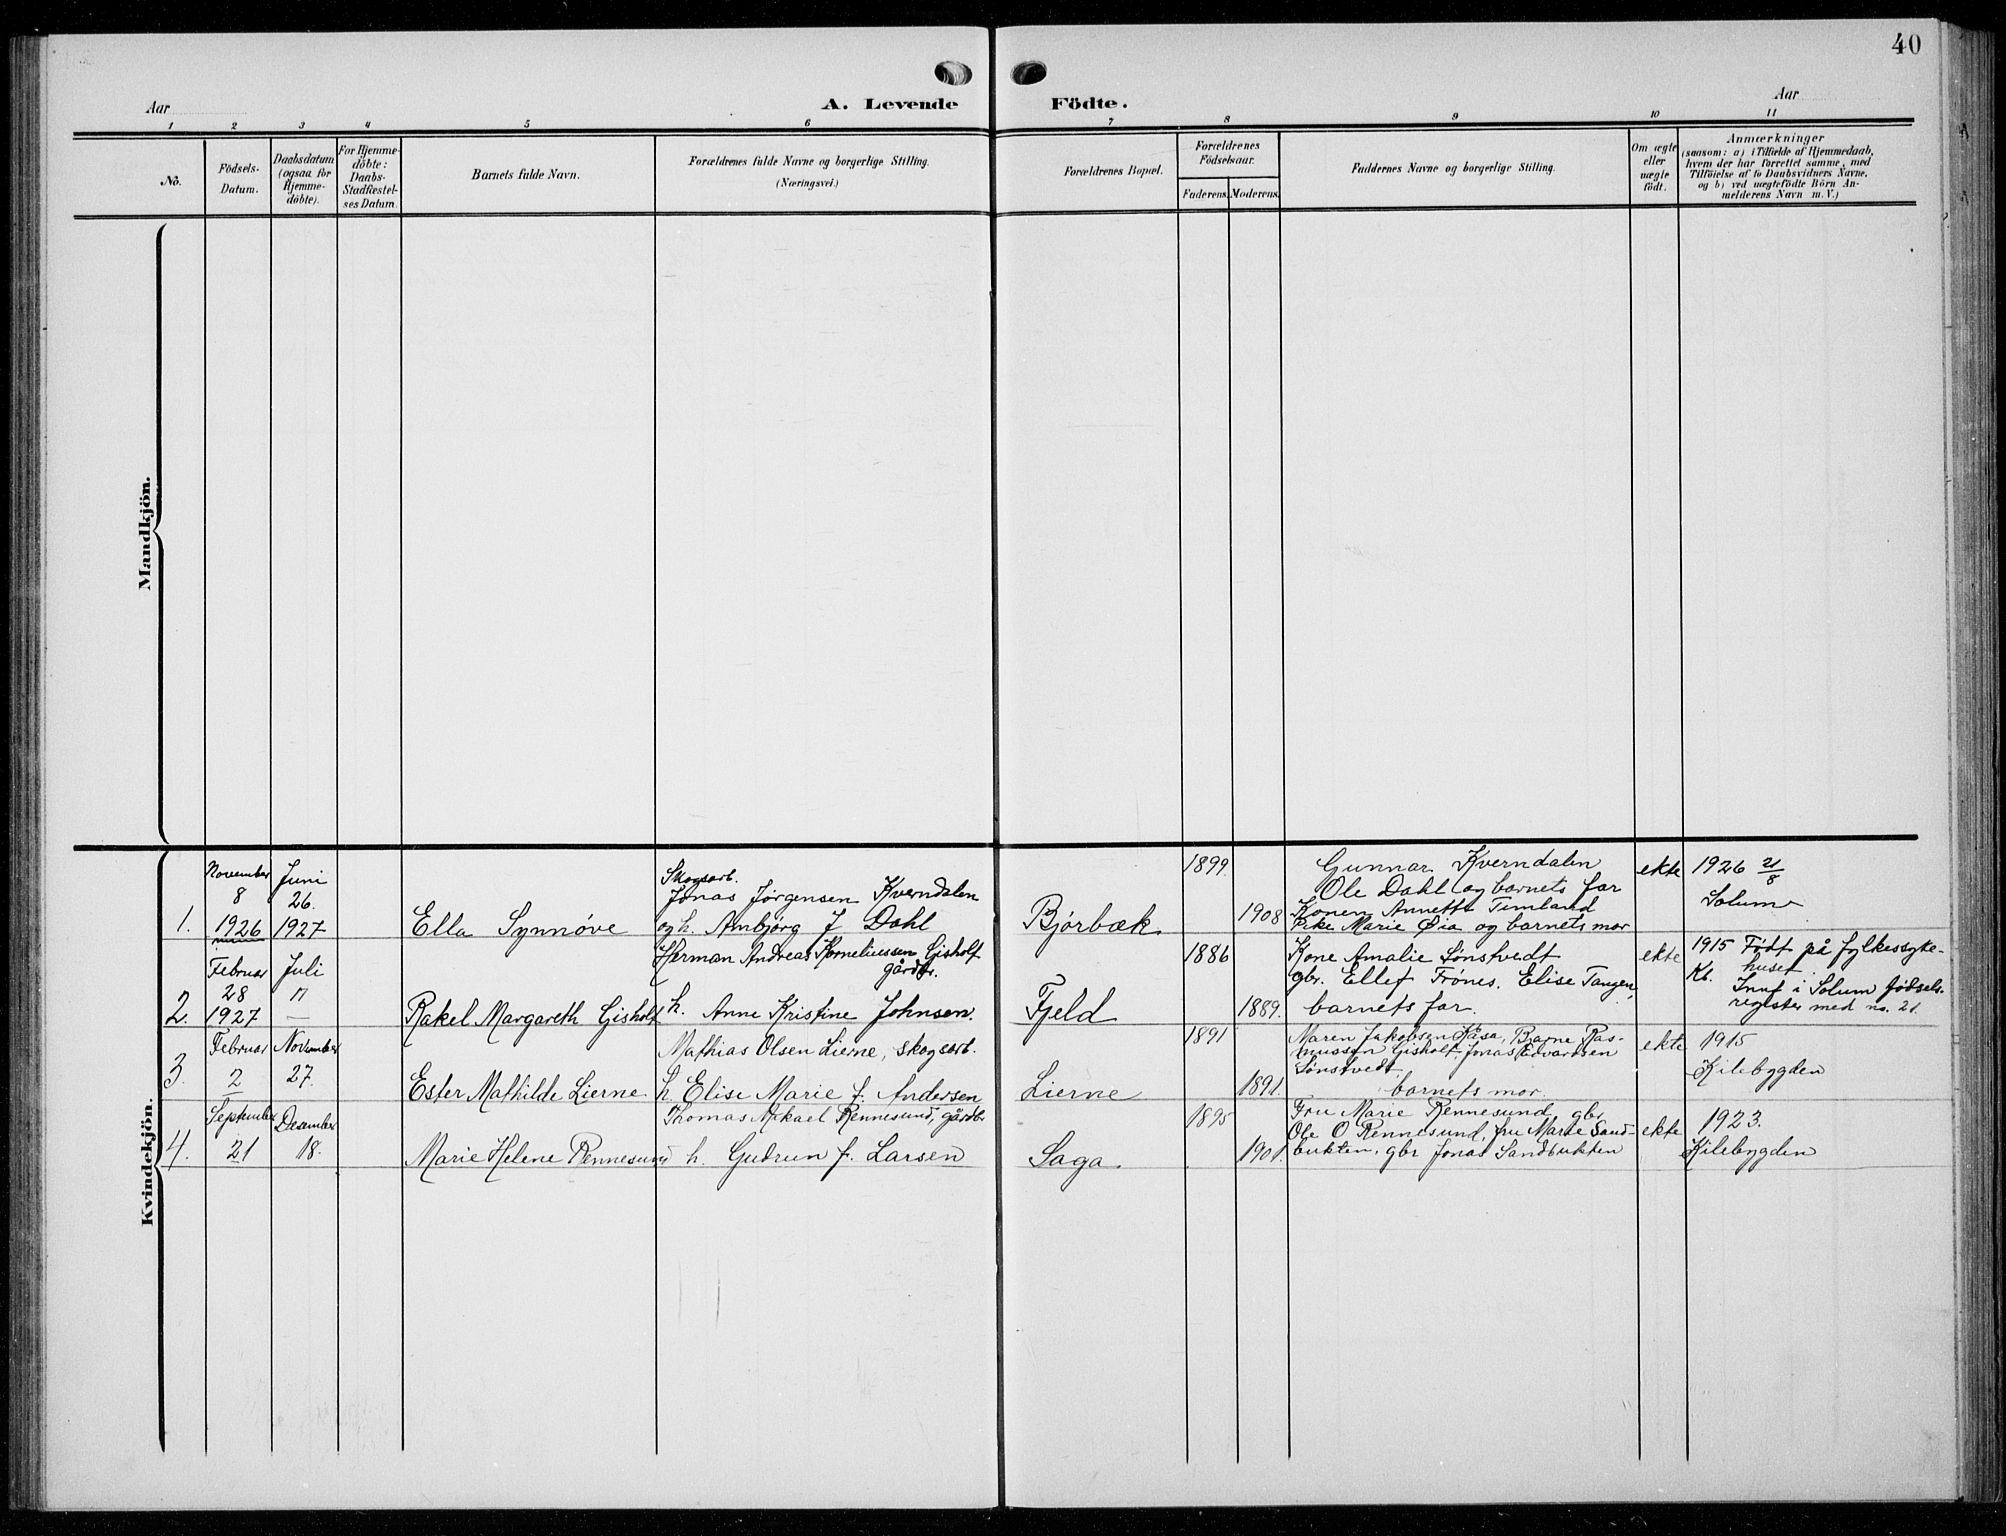 40
Aar
A. Levende
Födte.
Aar
1 2 3 4 5 6 7 8 9 10 11
No.
Födsels-
Datum.
Daabsdatum
(ogsaa for
Hjemme-
döbte).
For Hjemme-
döbte:
Daabs-
Stadfæstel-
ses Datum.
Barnets fulde Navn.
Forældrenes fulde Navne og borgerlige Stilling.
(Næringsvei.)
Forældrenes Bopæl.
Forældrenes
Födselsaar.
Faderens.
Moderens.
Faddernes Navne og borgerlige Stilling.
Om ægte
eller
uægte
födt.
Anmærkninger
(saasom: a) i Tilfælde af Hjemmedaab,
hvem der har forrettet samme, med
Tilföielse af to Daabsvidners Navne,
og b) ved uægtefödte Börn An-
melderens Navn m. V.)
Mandkjön.
Kvindekjön.
1.
November
8
1926
Juni
26.
1927
Ella Synnøve
Skogsarb.
Jonas Jørgensen Kverndalen
og h. Ambjørg J Dahl
Bjørbæk
1899.
1908
Gunnar Kverndalen
Ole Dahl og barnets far
Konen Annette Timland
Pike Marie Øia og barnets mor
ekte
1926 21/8
Solum
2.
Februar
28
1927
Juli
17
—
Rakel Margareth Gisholt
Herman Andreas Korneliussen Gisholt
gårdbr.
h. Anne Kristine Johnsen.
Fjeld
1886
1889.
Kone Amalie Sønstvedt
gbr. Ellef Frönes, Elise Tangen,
barnets far.
ekte
1915 Født på fylkessyke-
Kb. huset.
Innf i Solum fødsels-
register med no. 21.
3.
Februar
2
November
27.
Ester Mathilde Lierne
Mathias Olsen Lierne, skogsarb.
h Elise Marie f. Andersen
Lierne
1891
1891.
Maren Jakobsen Kåsa, Bjarne Ras-
mussen Gisholt, Jonas Edvardsen
Sønstvedt,
barnets mor.
ekte
1915
Kilebygden
4.
September
21
Desember
18.
Marie Helene Rennesund
Thomas Mikael Rennesund, gårdbr
h. Gudrun f. Larsen
Saga
1895
1901.
Fru Marie Rennesund, gbr
Ole O Rennesund, fru Marie Sand-
bukten, gbr Jonas Sandbukten
ekte
1923.
Kilebygden